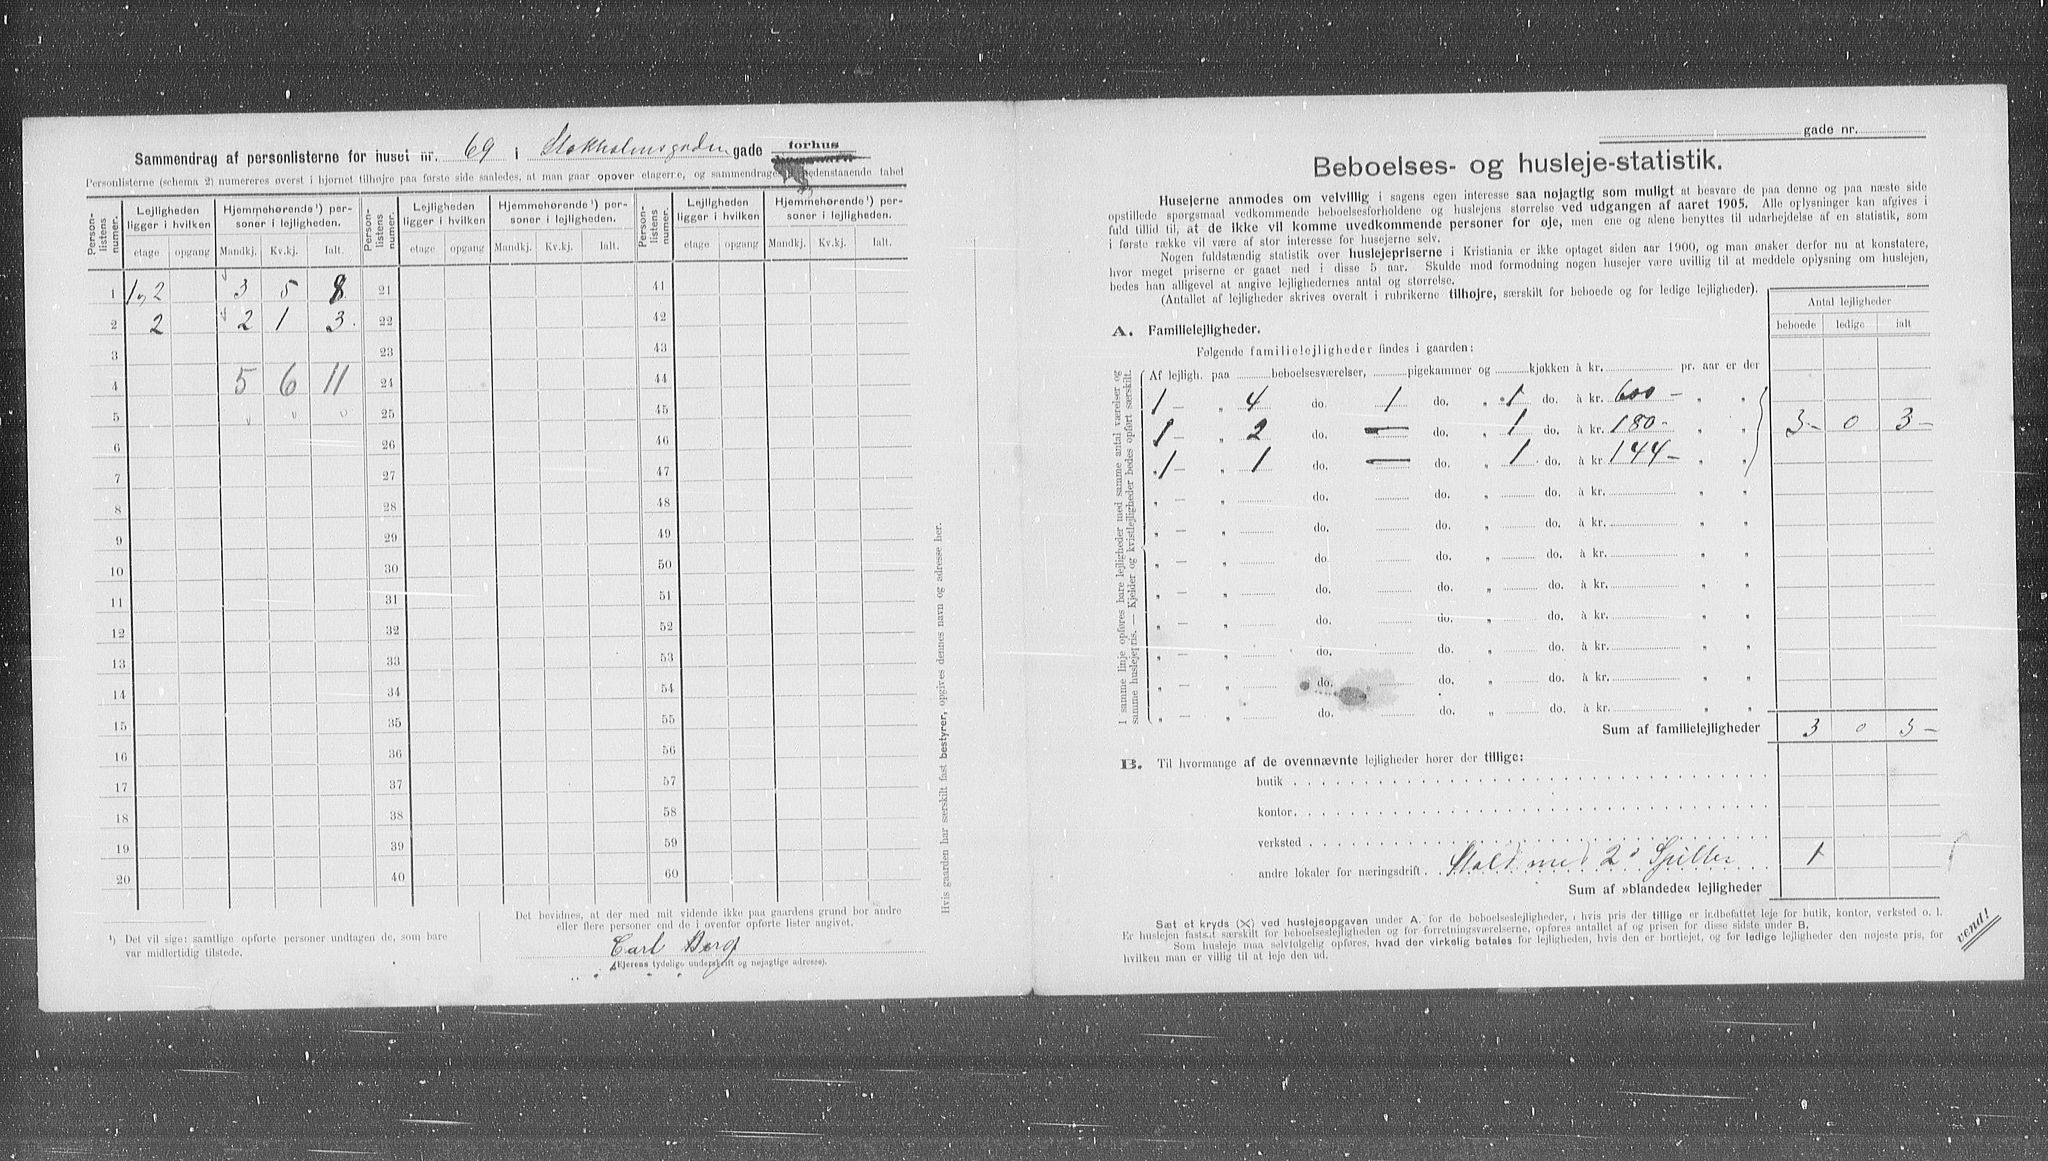 Sammendrag af personlisterne for huset nr. 69 i Stokholmsgaden gade forhus
Personlisterne (schema 2) numereres øverst i hjørnet tilhøjre paa første side saaledes, at man gaar opover etagerne, og sammendrages nedenstaaende tabel
Person-listens numer. Lejligheden ligger i hvilken Hjemmehørende ¹) personer i lejligheden. Person-listens numer. Lejligheden ligger i hvilken Hjemmehørende ¹) personer i lejligheden. Person-listens numer. Lejligheden ligger i hvilken Hjemmehørende ¹) personer i lejligheden.
etage opgang Mandkj. Kv.kj. Ialt. etage opgang Mandkj. Kv.kj. Ialt. etage opgang Mandkj. Kv.kj. Ialt.
1 1 2 3 5 8 21 41
2 2 2 1 3 22 42
3 23 43
4 5 6 11 24 44
5 25 45
6 26 46
7 27 47
8 28 48
9 29 49
10 30 50
11 31 51
12 32 52
13 33 53
14 34 54
15 35 55
16 36 56
17 37 57
18 38 58
19 39 59
20 40 60
¹) Det vil sige: samtlige opførte personer undtagen de, som bare
var midlertidig tilstede.
Det bevidnes, at der med mit vidende ikke paa gaardens grund bor andre
eller flere personer end de i ovenfor opførte lister angivet.
Carl Berg
(Ejerens tydelige underskrift og nøjagtige adresse).
Hvis gaarden har særskilt fast bestyrer, opgives dennes navn og adresse her.
gade nr.
Beboelses- og husleje-statistik.
Husejerne anmodes om velvillig i sagens egen interesse saa nøjagtig som muligt at besvare de paa denne og paa næste side
opstillede spørgsmaal vedkommende beboelsesforholdene og huslejens størrelse ved udgangen af aaret 1905. Alle oplysninger kan afgives i
fuld tillid til, at de ikke vil komme uvedkommende personer for øje, men ene og alene benyttes til udarbejdelse af en statistik, som
i første række vil være af stor interesse for husejerne selv.
Nogen fuldstændig statistik over huslejepriserne i Kristiania er ikke optaget siden aar 1900, og man ønsker derfor nu at konstatere,
hvor meget priserne er gaaet ned i disse 5 aar. Skulde mod formodning nogen husejer være uvillig til at meddele oplysning om huslejen,
bedes han alligevel at angive lejlighedernes antal og størrelse.
(Antallet af lejligheder skrives overalt i rubrikerne tilhøjre, særskilt for beboede og for ledige lejligheder).
Antal lejligheder
beboede ledige ialt
A. Familielejligheder.
Følgende familielejligheder findes i gaarden:
I samme linje opføres bare lejligheder med samme antal værelser og
samme huslejepris. — Kjelder og kvistlejligheder bedes opført særskilt.
Af lejligh. paa beboelsesværelser, pigekammer og kjøkken à kr. pr. aar er der
1 — „ 4 do. 1 do. „ 1 do. à kr. 600 — „ „
1 — „ 2 do. — do. „ 1 do. à kr. 180 - „ „ 3 - 0 3 -
1 — „ 1 do. — do. „ 1 do. à kr 144 - „ „
„ — „ do. do. „ do. à kr. „ „
„ — „ do. do. „ do. à kr. „ „
„ — „ do. do. „ do. à kr. „ „
„ — „ do. do. „ do. à kr. „ „
„ — „ do. do. „ do. à kr. „ „
„ — „ do. do. „ do. à kr. „ „
„ — „ do. do. „ do. à kr. „ „
„ — „ do. do. „ do. à kr. „ „
Sum af familielejligheder 3 0 3 -
B. Til hvormange af de ovennævnte lejligheder hører der tillige:
butik
kontor
verksted
andre lokaler for næringsdrift Stald med 2 Spilter 1
Sum af »blandede« lejligheder
Sæt et kryds (×) ved huslejeopgaven under A. for de beboelseslejligheder, i hvis pris der tillige er indbefattet leje for butik, kontor, verksted o. l.
Er huslejen fastsat særskilt for beboelseslejligheden og for forretningsværelserne, opføres antallet af og prisen for disse sidste under B.
Som husleje man selvfølgelig opføres, hvad der virkelig betales for lejligheden, hvis den er bortlejet, og for ledige lejligheder den nøjeste pris, for
hvilken man er villig til at leje den ud.
vend!